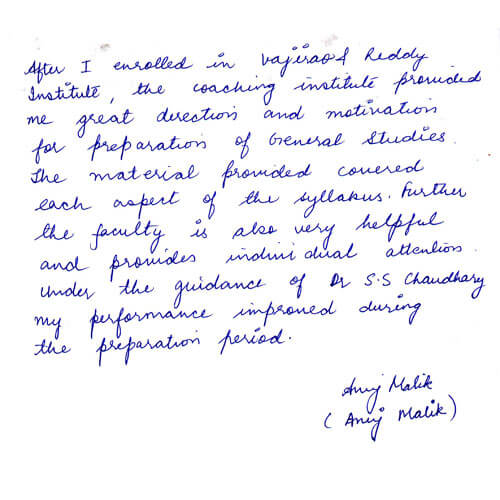 After I enrolled in vajirao & Reddy
Institute, the coaching institute provided
me great direction and motivation
for preparation of General Studies.
The material provided covered
each aspect of the syllabus. Further
the faculty is also very helpful
and provides individual attention.
Under the guidance of Dr S.S Chaudhary
my performance improved during
the preparation period.
Anuj Malik
(Anuj Malik)